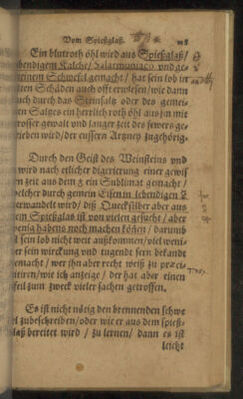 Vom Spießglaß.
Ein blutroth öhl wird aus Spießglaß/
bendigem Kalche/ Salarmoniaco vnd ge-
meinem Schwefel gemacht/ hat sein lob in
alten Schäden auch offt erwiesen/ wie dann
auch durch das Steinsaltz oder des gemei-
nen Saltzes ein herrlich roth öhl auch mit
grosser gewalt vnd langer zeit des fewers ge-
trieben wird/ der eussern Artzney zugehörig.
Durch den Geist des Weinsteins vnd
wird nach etlicher digerirung einer gewis
zeit aus dem Sublimat gemacht/
welcher durch gemein Eisen in lebendigen
verwandelt wird/ diß Quecksilber aber aus
dem Spießglas ist von vielen gesucht/ aber
wenig habens noch machen können/ darumb
sein lob nicht weit außkommen/ viel weni-
ger sein wirckung vnd tugende sern bekandt
gemacht/ wer ihn aber recht weiß zu præci-
pitiren/ wie ich anzeige/ der hat aber einen
Pfeil zum zweck vieler sachen getroffen.
Es ist nicht nötig den brennenden schwe
zubeschreiben/ oder wie er aus dem spieß-
glaß bereitet wird/ zu lernen/ dann es ist
leicht